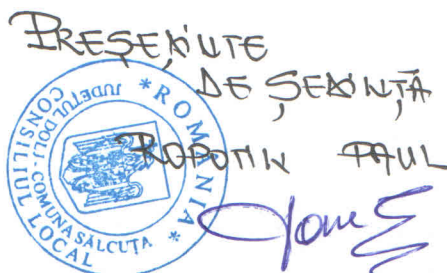 PREȘEDINTE
DE ȘEDINȚĂ
ROPOTIN PAUL
* ROMÂNIA *
JUDEȚUL DOLJ - COMUNA SĂLCUȚA
CONSILIUL LOCAL